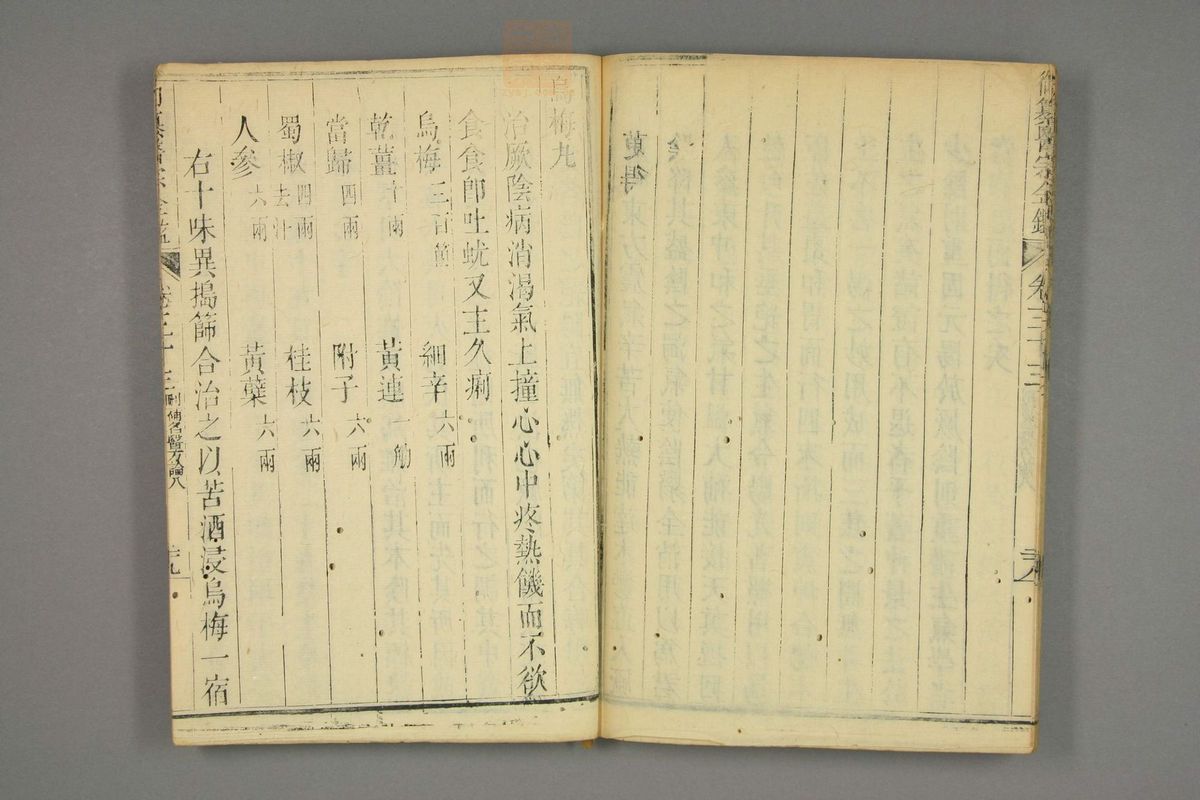 御纂醫宗金鑑 卷三十三
莫得
烏梅丸
治厥陰病消渴氣上撞心心中疼熱饑而不欲
食食即吐蚘又主久痢
烏梅三百箇 細辛六兩
乾薑十兩 黃連一觔
當歸四兩 附子六兩
蜀椒四兩去汁 桂枝六兩
人參六兩 黃蘗六兩
右十味異搗篩合治之以苦酒浸烏梅一宿
卷三十三 刪補名醫方論八